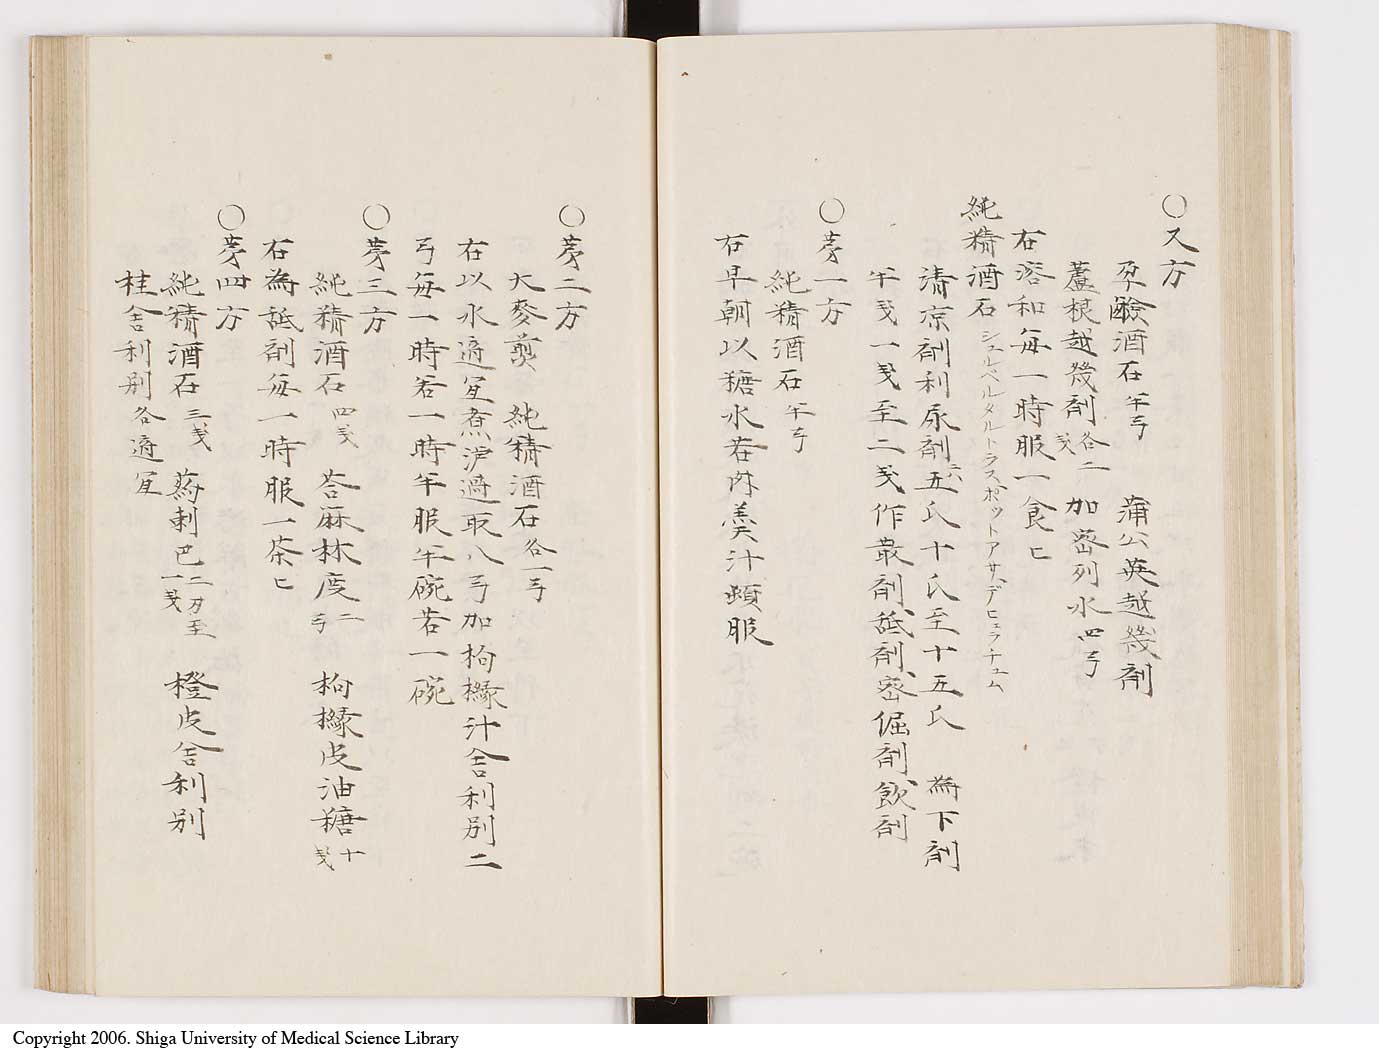 ○又方
孕鹸酒石半弓 蒲公英越幾剤
蘆根越幾剤各二戔 加密列水四弓
右溶和毎一時服一食匕
純精酒石 シュルペルタルトラス、ポットアサ、デピュラチュム
清凉剤利尿剤六五氏十氏至十五氏 為下剤
半戔一戔至二戔作散剤、舐剤、密倔剤、飲剤
○㐧一方
純精酒石半弓
右早朝以糖水若肉羹汁頓服
○㐧二方
大麥煎 純精酒石各一弓
右以水適宜煮滤過取八弓加枸櫞汁舎利別二
弓毎一時若一時半服半碗若一碗
○㐧三方
純精酒石四戔 荅麻林度二弓 枸櫞皮油糖十戔
右為舐剤毎一時服一茶匕
○㐧四方
純精酒石三戔 葯剌巴二刃至一戔 橙皮舎利別
桂舎利別各適宜
Copyright 2006. Shiga University of Medical Science Library